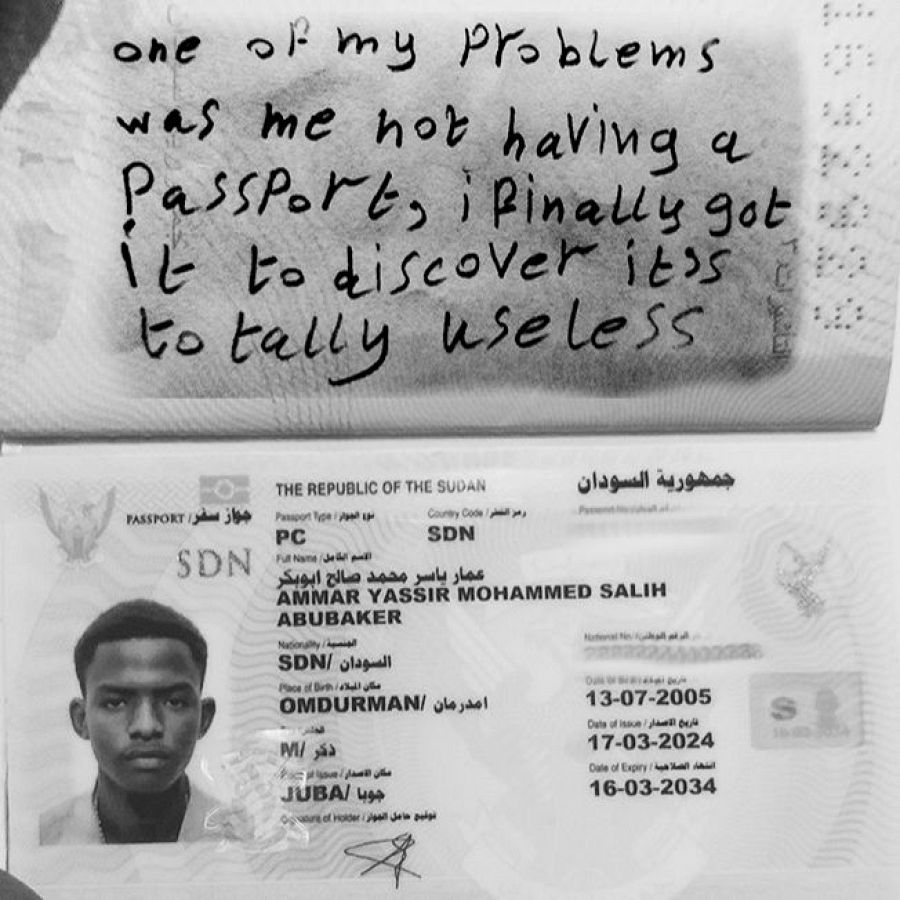 one of my problems
was me not having a
Passport, i finally got
it to discover it's
totally useless
THE REPUBLIC OF THE SUDAN
جمهورية السودان
PASSPORT / جواز سفر
Passport Type / نوع الجواز
Country Code / رمز القطر
PC
SDN
SDN
Full Name / الاسم الكامل
عمار ياسر محمد صالح ابوبكر
AMMAR YASSIR MOHAMMED SALIH
ABUBAKER
Nationality / الجنسية
National No / الرقم الوطني
SDN/ السودان
Place of Birth / مكان الميلاد
OMDURMAN/ امدرمان
13-07-2005
Date of Issue / تاريخ الاصدار
M/ ذكر
17-03-2024
Place of Issue / مكان الاصدار
Date of Expiry / انتهاء الصلاحية
JUBA/ جوبا
16-03-2034
Signature of Holder / توقيع حامل الجواز